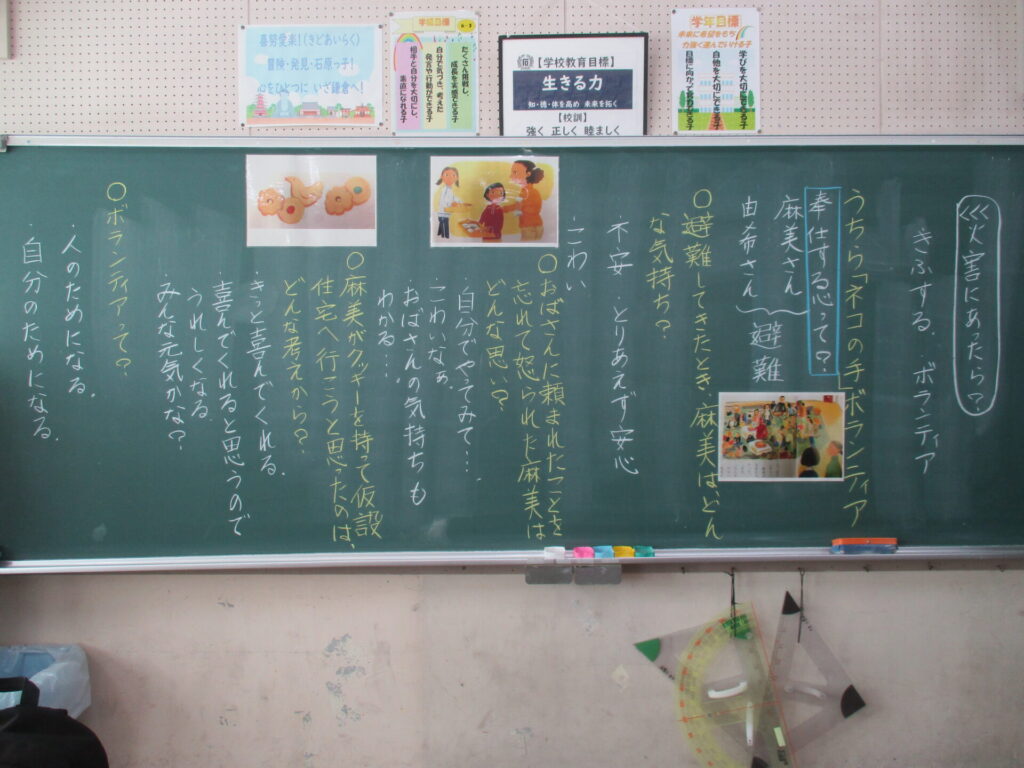 喜努愛楽!(きどあいらく)
冒険・発見・石原っ子!
心をひとつに いざ鎌倉へ!
学級目標
6-3
たくさん挑戦し、
成長を実感できる子
自分で気づき、考えた
発言や行動ができる子
相手と自分を大切にし、
素直になれる子
【学校教育目標】
生きる力
知・徳・体を高め 未来を拓く
【校訓】
強く 正しく 睦ましく
学年目標
未来に希望をもち
力強く進んでいける子
学びを大切にできる子
自他を大切にできる子
目標に向かって努力できる子
災害にあったら?
きふする。ボランティア
うちら「ネコの手」ボランティア
奉仕する心って?
麻美さん
由希さん
避難
○避難してきたとき、麻美はどん
な気持ち?
不安 ・とりあえず安心
・こわい
○おばさんに頼まれたことを
忘れて怒られた麻美は
どんな思い?
・自分でやってみて…。
・こわいなぁ
・おばさんの気持ちも
わかる…。
○麻美がクッキーを持って仮設
住宅へ行こうと思ったのは、
どんな考えから?
・きっと喜んでくれる。
・喜んでくれると思うので
うれしくなる
・みんな元気かな?
○ボランティアって?
・人のためになる。
・自分のためになる。